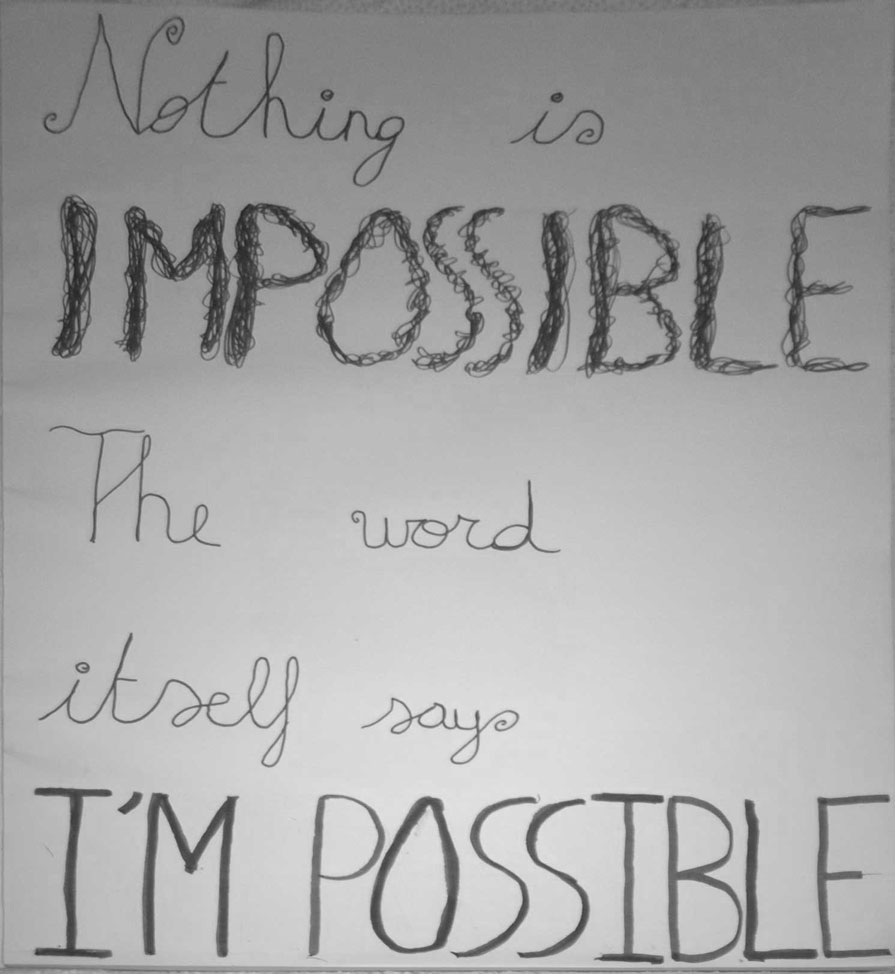 Nothing is
IMPOSSIBLE
The word
itself says
I'M POSSIBLE